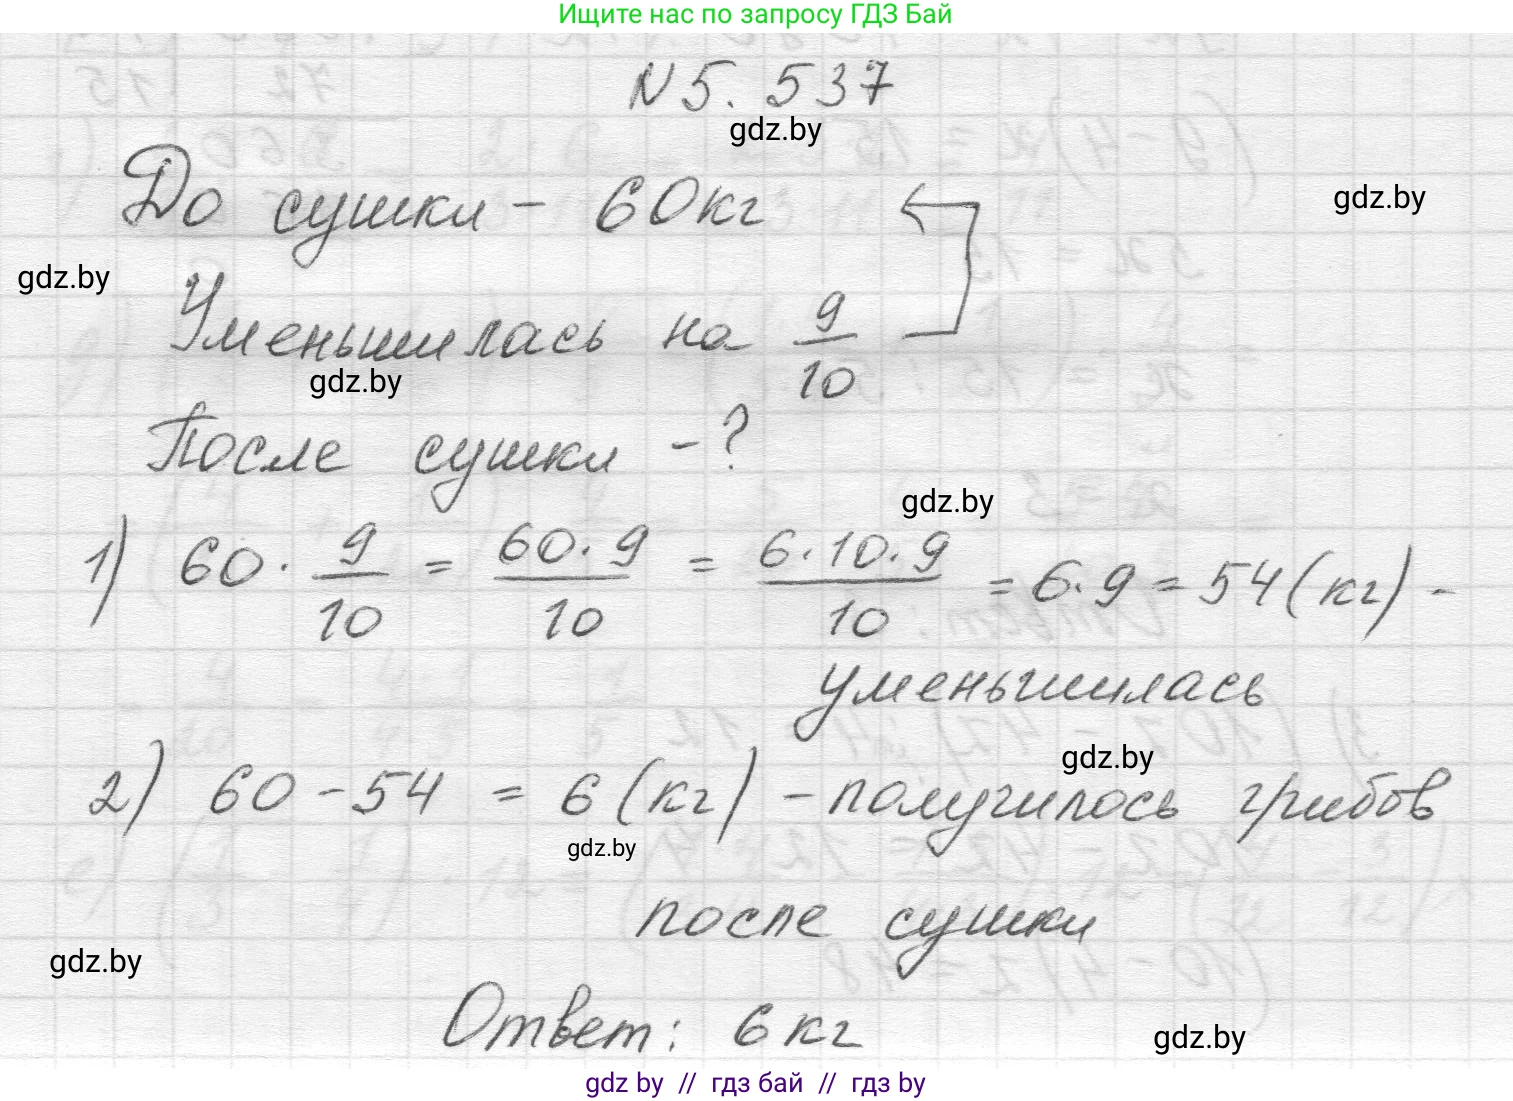 Ищите нас по запросу ГДЗ Бай
N 5. 537
gdz.by
До сушки - 60кг
gdz.by
gdz.by
Уменьшилась на 9/10
gdz.by
После сушки - ?
gdz.by
1) 60 · 9/10 = 60·9/10 = 6·10·9/10 = 6·9 = 54 (кг) -
уменьшилась
gdz.by
2) 60 - 54 = 6 (кг) - получилось грибов
gdz.by
после сушки
gdz.by
Ответ: 6 кг
gdz.by
gdz by // гдз бай // гдз by